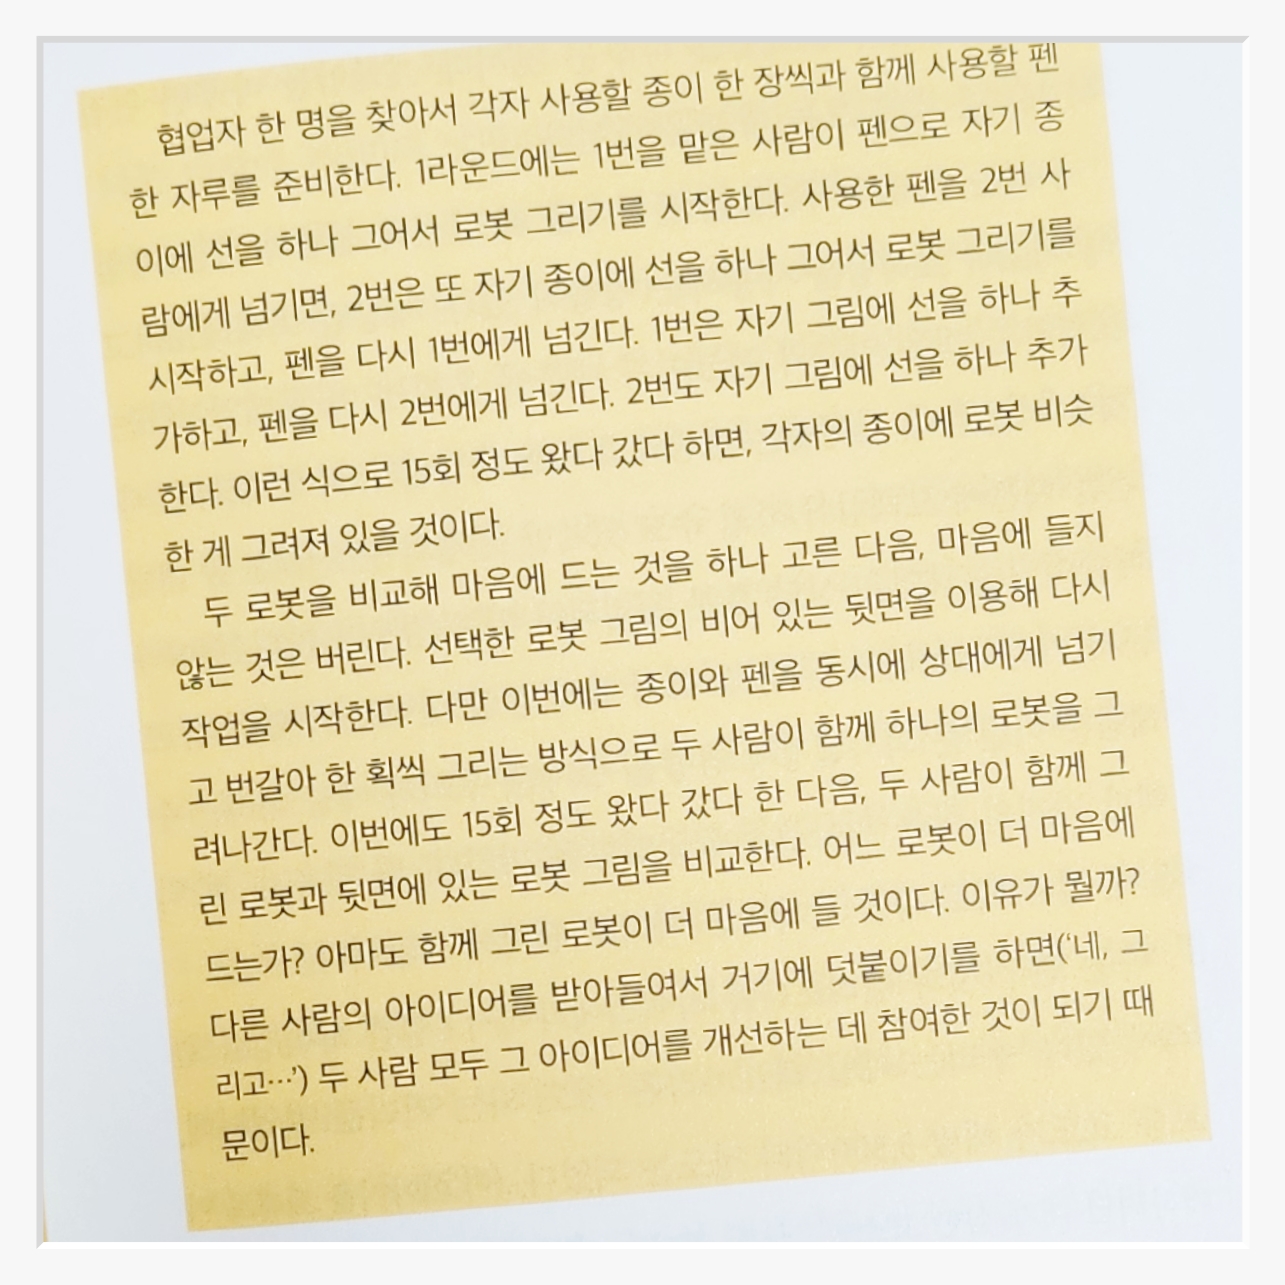 협업자 한 명을 찾아서 각자 사용할 종이 한 장씩과 함께 사용할 펜
한 자루를 준비한다. 1라운드에는 1번을 맡은 사람이 펜으로 자기 종
이에 선을 하나 그어서 로봇 그리기를 시작한다. 사용한 펜을 2번 사
람에게 넘기면, 2번은 또 자기 종이에 선을 하나 그어서 로봇 그리기를
시작하고, 펜을 다시 1번에게 넘긴다. 1번은 자기 그림에 선을 하나 추
가하고, 펜을 다시 2번에게 넘긴다. 2번도 자기 그림에 선을 하나 추가
한다. 이런 식으로 15회 정도 왔다 갔다 하면, 각자의 종이에 로봇 비슷
한 게 그려져 있을 것이다.
두 로봇을 비교해 마음에 드는 것을 하나 고른 다음, 마음에 들지
않는 것은 버린다. 선택한 로봇 그림의 비어 있는 뒷면을 이용해 다시
작업을 시작한다. 다만 이번에는 종이와 펜을 동시에 상대에게 넘기
고 번갈아 한 획씩 그리는 방식으로 두 사람이 함께 하나의 로봇을 그
려나간다. 이번에도 15회 정도 왔다 갔다 한 다음, 두 사람이 함께 그
린 로봇과 뒷면에 있는 로봇 그림을 비교한다. 어느 로봇이 더 마음에
드는가? 아마도 함께 그린 로봇이 더 마음에 들 것이다. 이유가 뭘까?
다른 사람의 아이디어를 받아들여서 거기에 덧붙이기를 하면(‘네, 그
리고…’) 두 사람 모두 그 아이디어를 개선하는 데 참여한 것이 되기 때
문이다.